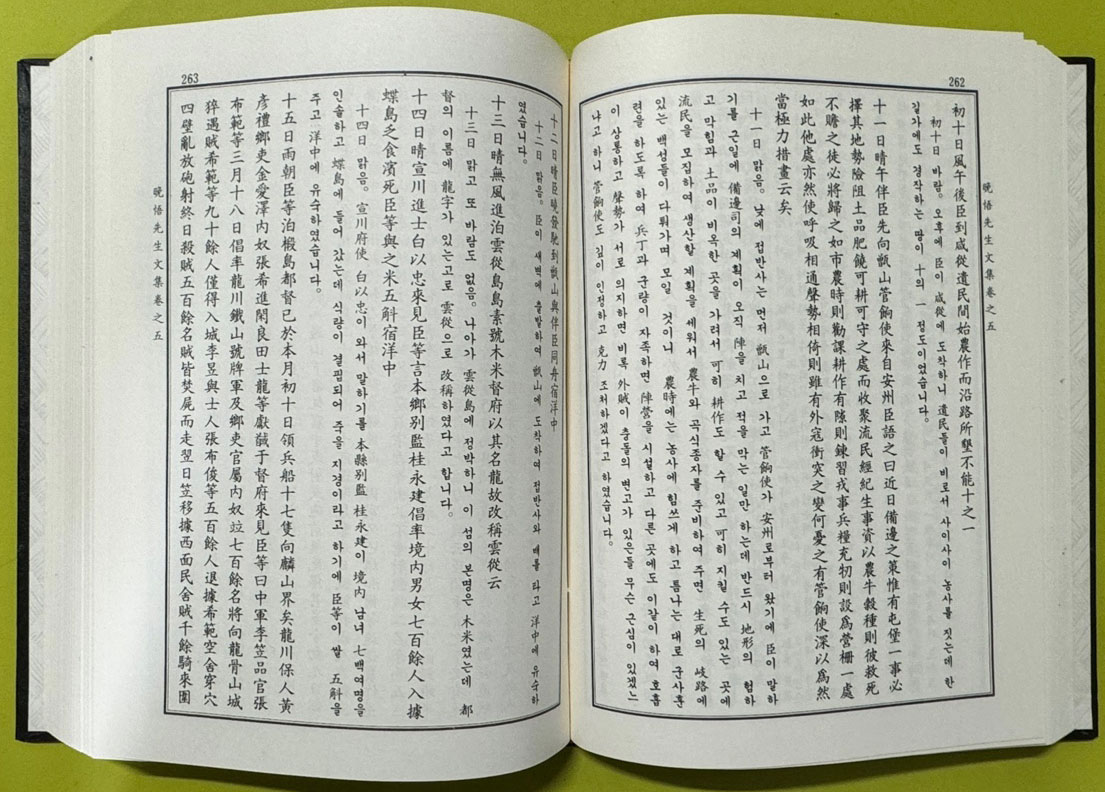 262
晩悟先生文集卷之五
初十日風午後臣到咸從遺民間始農作而沿路所墾不能十之一
初十日 바람。오후에 臣이 咸從에 도착하니 遺民들이 비로서 사이사이 농사를 짓는데 한
길가에도 경작하는 땅이 十의 一 정도이었습니다。
十一日晴午伴臣先向甑山管餉使來自安州臣語之曰近日備邊之策惟有屯堡一事必
擇其地勢險阻土品肥饒可耕可守之處而收聚流民經紀生事資以農牛穀種則彼救死
不贍之徒必將歸之如市農時則勸課耕作有隙則鍊習戎事兵糧充牣則設爲營柵一處
如此他處亦然使呼吸相通聲勢相倚則雖有外寇衝突之變何憂之有管餉使深以爲然
當極力措畫云矣
十一日 맑음。낮에 접반사는 먼저 甑山으로 가고 管餉使가 安州로부터 왔기에 臣이 말하
기를 근일에 備邊司의 계획이 오직 陣을 치고 적을 막는 일만 하는데 반드시 地形의 험하
고 막힘과 土品이 비옥한 곳을 가려서 可히 耕作도 할 수 있고 可히 지킬 수도 있는 곳에
流民을 모집하여 생산할 계획을 세워서 農牛와 곡식종자를 준비하여 주면 生死의 岐路에
있는 백성들이 다퉈가며 모일 것이니 農時에는 농사에 힘쓰게 하고 틈나는 대로 군사훈
련을 하도록 하여 兵丁과 군량이 자족하면 陣營을 시설하고 다른 곳에도 이같이 하여 호흡
이 상통하고 聲勢가 서로 의지하면 비록 外賊이 충돌의 변고가 있은들 무슨 근심이 있겠느
냐고 하니 管餉使도 깊이 인정하고 克力 조처하겠다고 하였습니다。
263
十二日晴臣曉發馳到甑山與伴臣同舟宿洋中
十二日 맑음。臣이 새벽에 출발하여 甑山에 도착하여 접반사와 배를 타고 洋中에 유숙하
였습니다。
十三日晴無風進泊雲從島島素號木米督府以其名龍故改稱雲從云
十三日 맑고 또 바람도 없음。나아가 雲從島에 정박하니 이 섬의 본명은 木米였는데 都
督의 이름에 龍字가 있는고로 雲從으로 改稱하였다고 합니다。
十四日晴宣川進士白以忠來見臣等言本鄕別監桂永建倡率境內男女七百餘人入據
蝶島乏食濱死臣等與之米五斛宿洋中
十四日 맑음。宣川府使 白以忠이 와서 말하기를 本縣別監 桂永建이 境內 남녀 七百여명을
인솔하고 蝶島에 들어 갔는데 식량이 결핍되어 주을 지경이라고 하기에 臣等이 쌀 五斛을
주고 洋中에 유숙하였습니다。
十五日雨朝臣等泊椴島都督已於本月初十日領兵船十七隻向麟山界矣龍川保人黃
彦禮鄕吏金愛澤內奴張希進閑良田士龍等獻馘于督府來見臣等曰中軍李笠品官張
布範等三月十八日倡率龍川鐵山號牌軍及鄕吏官屬內奴竝七百餘名將向龍骨山城
猝遇賊希範等九十餘人僅得入城李昱與士人張布俊等五百餘人退據希範空舍穿穴
四壁亂放砲射終日殺賊五百餘名賊皆焚屍而走翌日笠移據西面民舍賊千餘騎來圍
晩悟先生文集卷之五